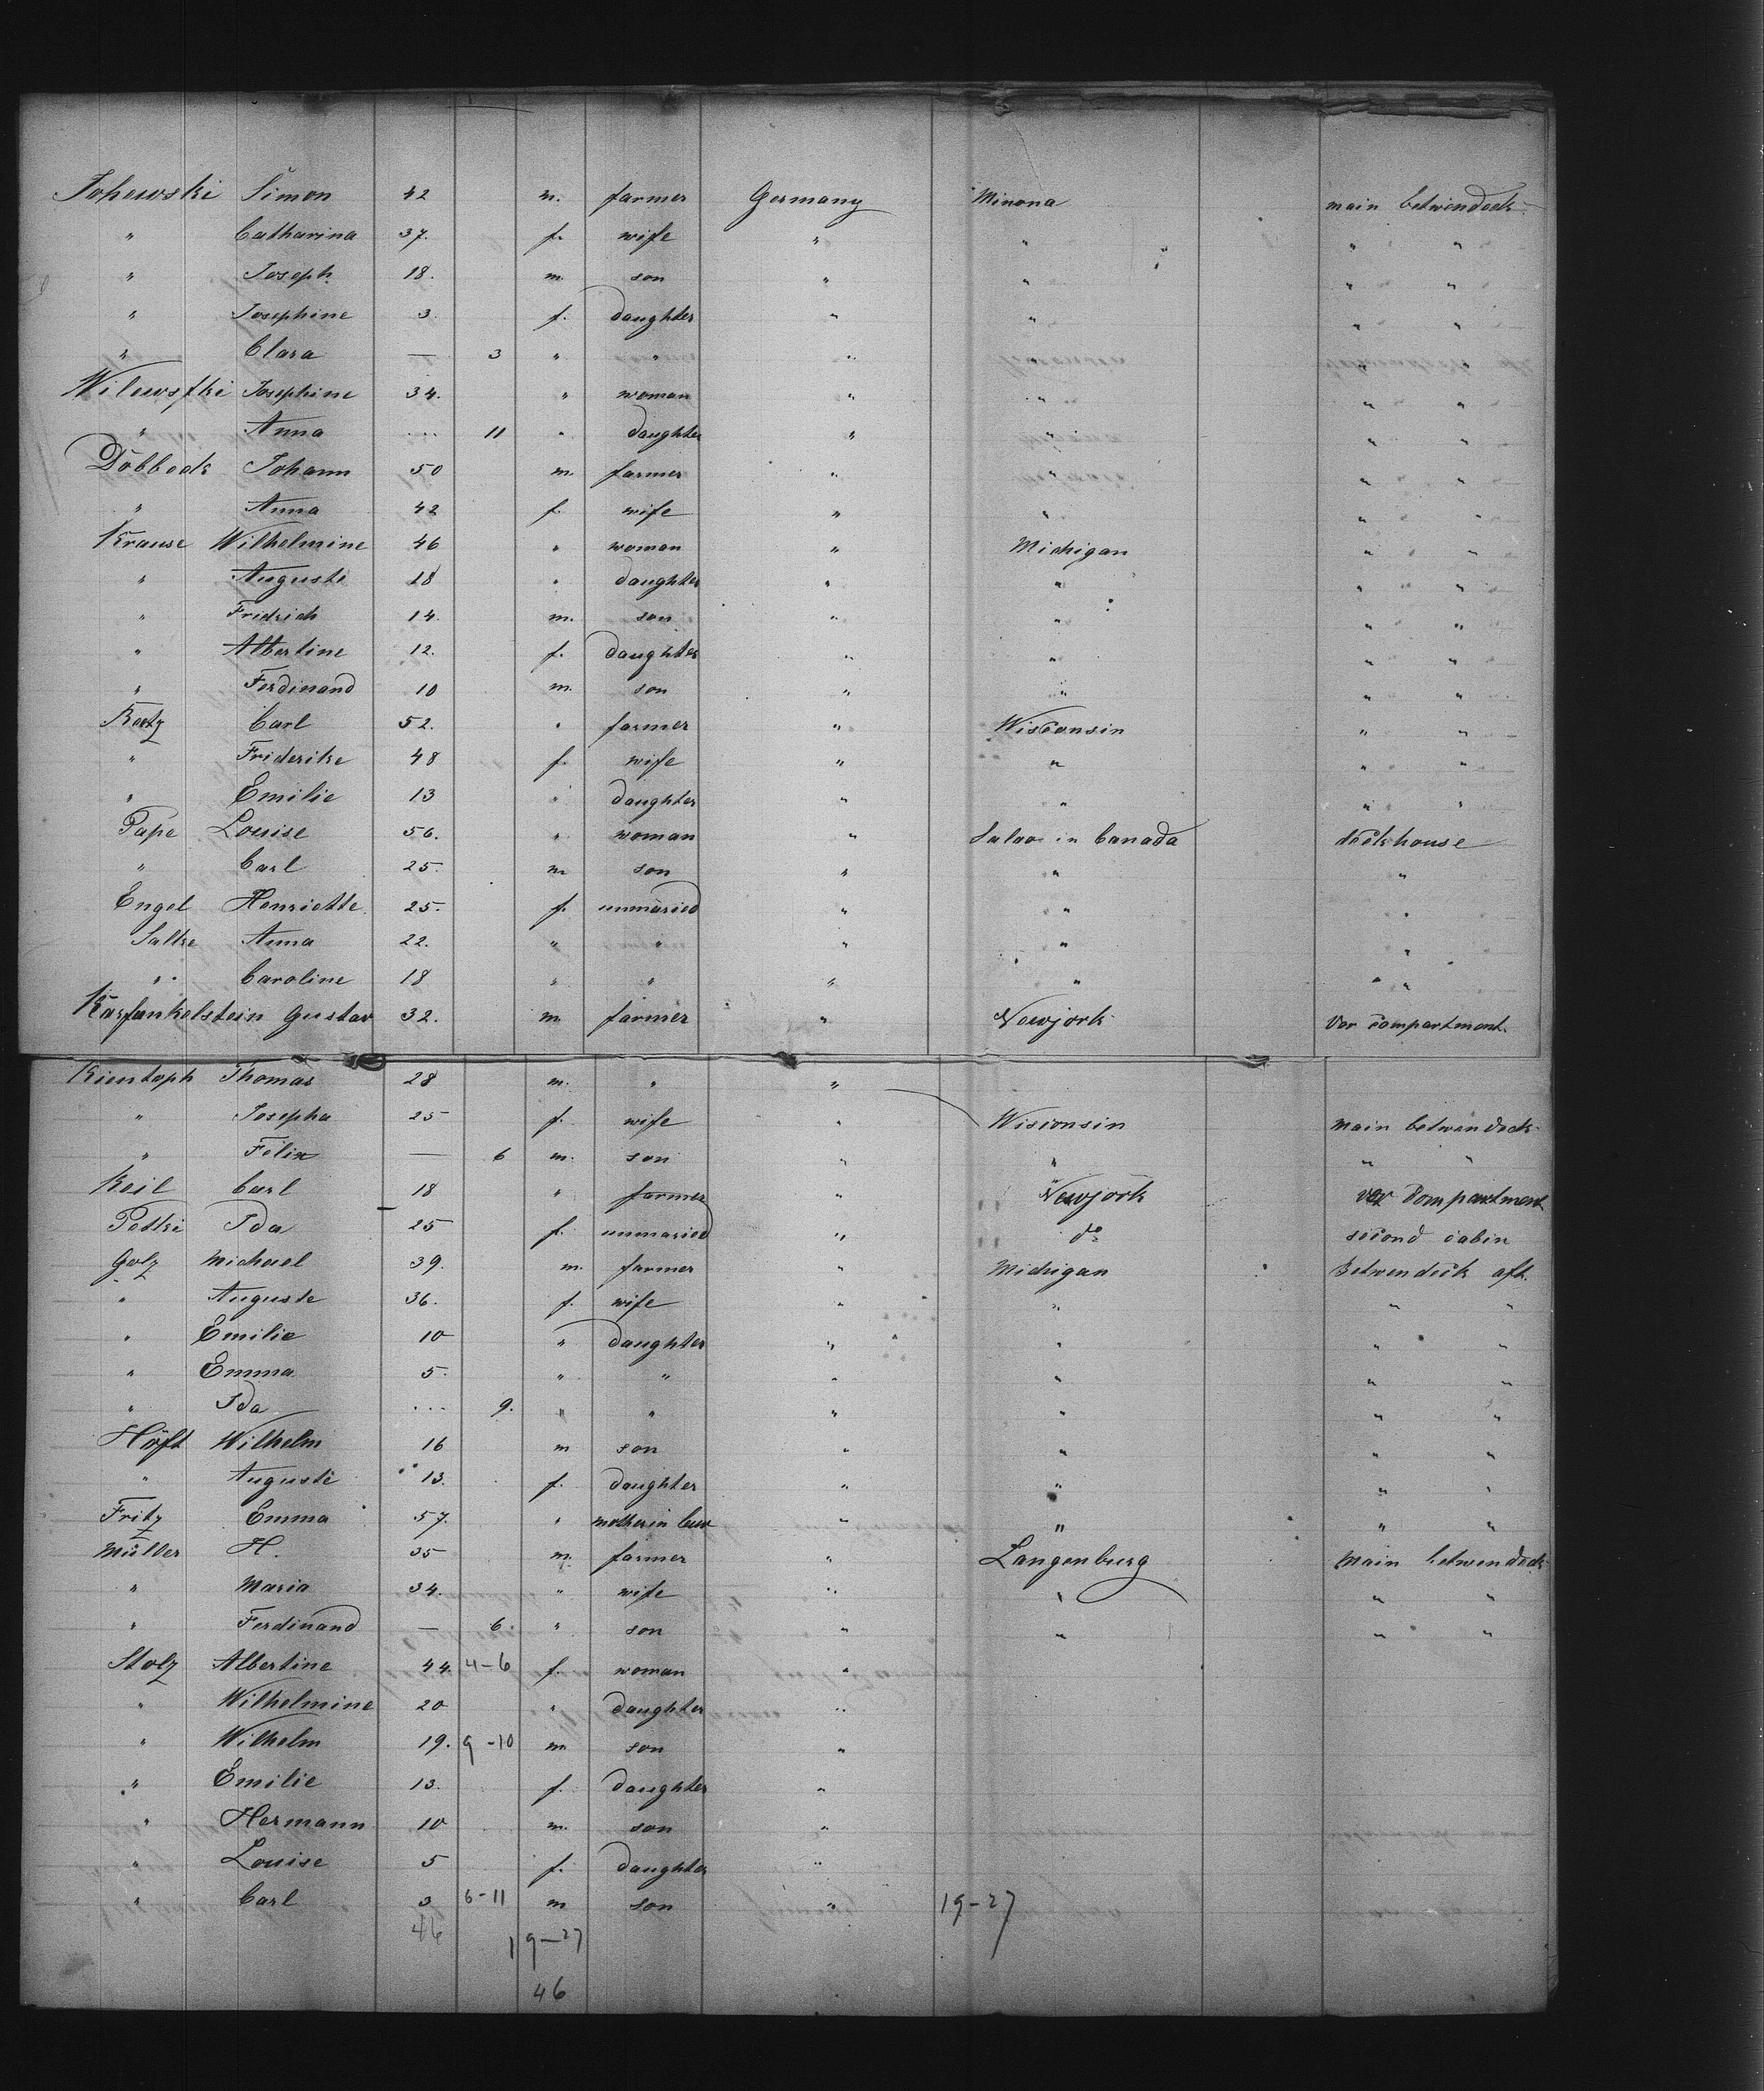 Johewski Simon 42 m. farmer Germany Minona main betwendeck
" Catharina 37. f. wife " " " "
" Joseph 18. m. son " " " "
" Josephine 3. f. daughter " " " "
" Clara — 3 " " " " " "
Wilewsfki Josephine 34. " woman " " " "
" Anna ... 11 " daughter " " " "
Döbbeck Johann 50 m. farmer " " " "
" Anna 42 f. wife " " " "
Krause Wilhelmine 46 " woman " Michigan " "
" Auguste 18 " daughter " " " "
" Fridrich 14. m. son " " " "
" Albertine 12. f. daughter " " " "
" Ferdinand 10 m. son " " " "
Carl 52. " farmer " Wisconsin " "
" Friderike 48 f. wife " " " "
" Emilie 13 " daughter " " " "
Pape Louise 56. " woman " in Canada deckhouse
" Carl 25. m son " " "
Engel Henriette 25. f. unmaried " " "
Salke Anna 22. " " " " "
" Caroline 18 " " " " " "
Karfunkelstein Gustav 32. m farmer " Newjork Vor compartment.
Kientoph Thomas 28 m. " "
" Josepha 25 f. wife " Wisionsin main betwendeck
" Felix — 6 m. son " " " "
Keil Carl 18 " farmer " Newjork vor compartment
Petki Ida 25 f. unmaried " do second cabin
Golz Michael 39. m. farmer " Michigan Betwendeck aft.
" Auguste 36. f. wife " " " "
" Emilie 10 " daughter " " " "
" Emma 5. " " " " " "
" Ida ... 9. " " " " " "
Höft Wilhelm 16 m son " " " "
" Auguste 13. f. daughter " " " "
Fritz Emma 57. " mother in law " " " "
Müller H. 35 m. farmer " Langenburg main betwendeck
" Maria 34. " wife " " " "
" Ferdinand — 6. " son " " " "
Stolz Albertine 44. 4-6 f. woman "
" Wilhelmine 20 " daughter "
" Wilhelm 19. 9-10 m son "
" Emilie 13. f. daughter "
" Hermann 10 m. son "
" Louise 5 f. daughter "
" Carl 3 6-11 m son " 19-27
46 19-27
46